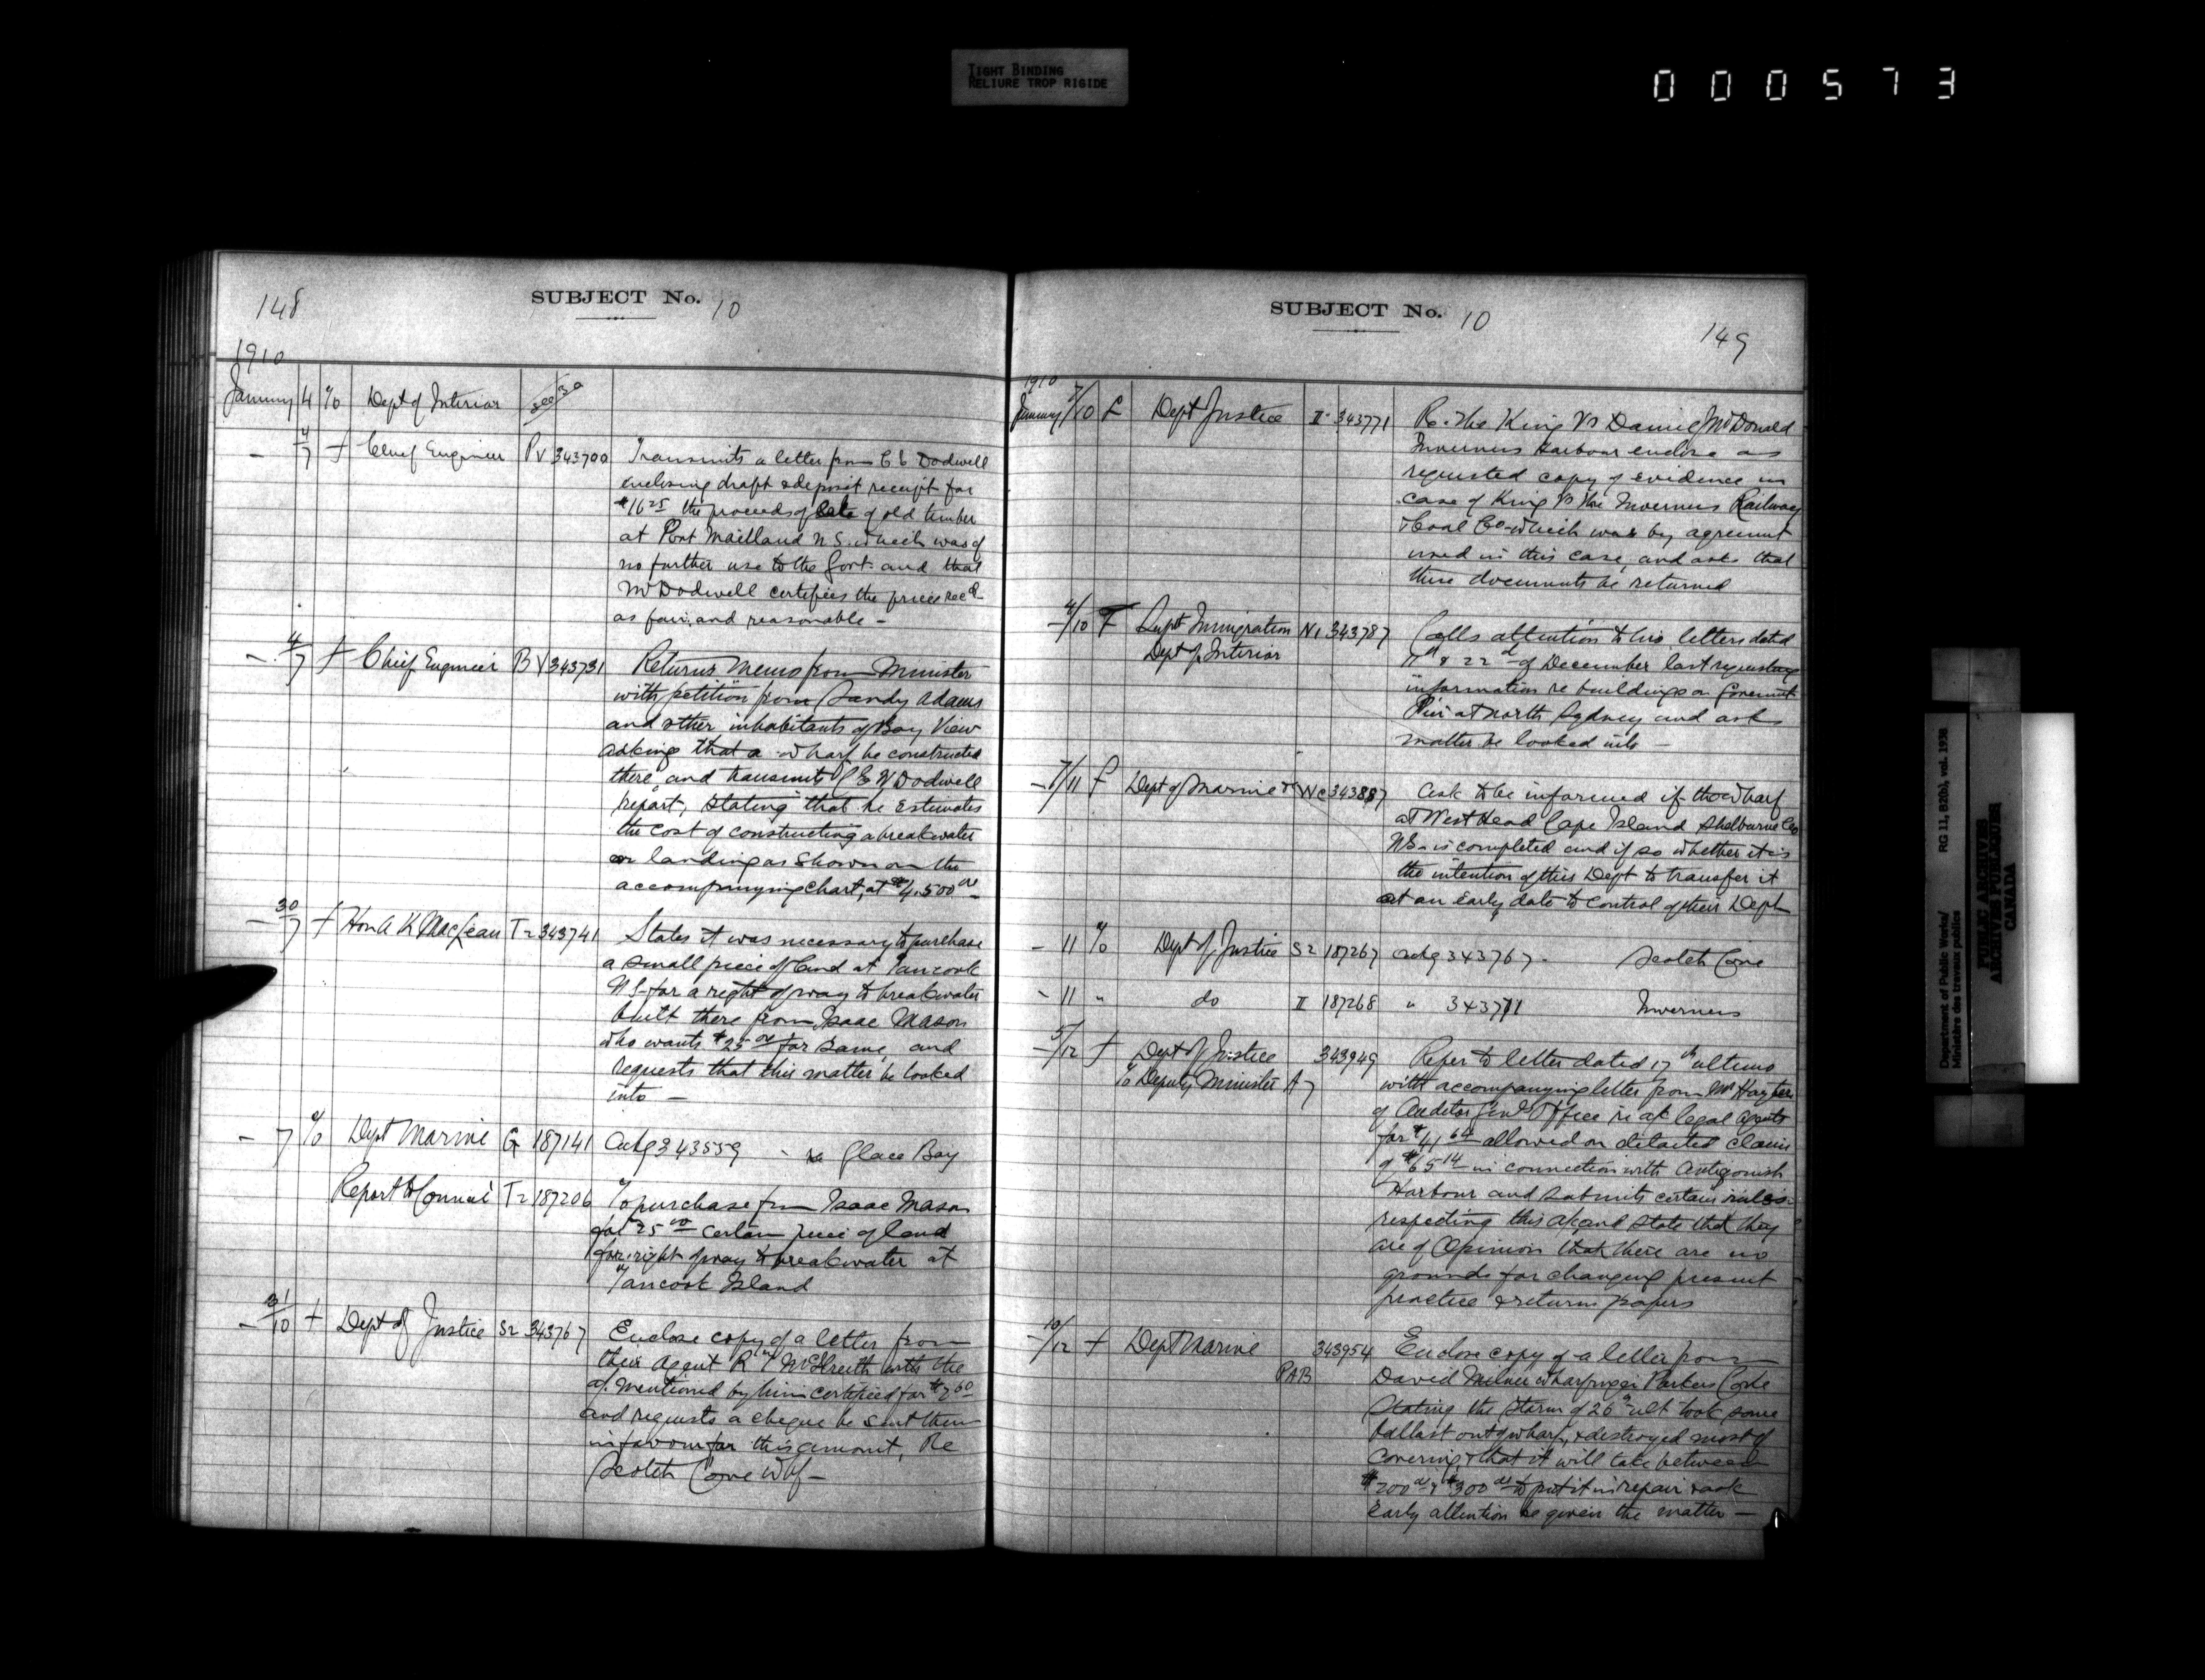 TIGHT BINDING
RELIURE TROP RIGIDE
000573
148
SUBJECT No. 10
1910
January 4 % Dept of Interior see 30
— 4/7 f Chief Engineer Pv 343700 Transmits a letter from C E Dodwell
enclosing draft & deposit receipt for
$16 25 the proceeds of sale of old timber
at Port Maitland N S. which was of
no further use to the Govt. and that
Mr Dodwell certifies the prices recd
as fair and reasonable —
— 4/7 f Chief Engineer B V 343731 Returns memo from Minister
with petition from Sandy Adams
and other inhabitants of Bay View
asking that a wharf be constructed
there and transmits C E W Dodwell
report, stating that he estimates
the cost of constructing a breakwater
or landing as shown on the
accompanying chart, at $4,500 00
— 30/7 f Hon A K MacLean T2 343741 States it was necessary to purchase
a small piece of land at Tancook
N S- for a right of way to breakwater
built there from Isaac Mason
who wants $25 00 for same, and
requests that this matter be looked
into —
— 7 % Dept Marine G 187141 Ackg 343559 - re Glace Bay
Report to Council T2 187206 To purchase from Isaac Mason
for $25 00 certain piece of land
for right of way to breakwater at
Tancook Island
— 31/10 f Dept of Justice S2 343767 Enclose copy of a letter from
their agent R T McIlreith with the
a/. mentioned by him certified for $7 60
and requests a cheque be sent them
in favour for this amount, Re
Scotch Cove Whf —
SUBJECT No. 10
149
1910
January 7/10 f Dept Justice II 343771 Re. The King Vs Daniel McDonald
Inverness Harbour enclose as
requested copy of evidence in
case of King Vs The Inverness Railway
& Coal Co - which was by agreement
used in this case, and asks that
these documents be returned
— 4/10 f Supt Immigration N1 343787 Calls attention to his letters dated
Dept of Interior 11th & 22d of December last requesting
information re buildings on Government
Pier at North Sydney and asks
matter be looked into —
— 7/11 f Dept of Marine & Wc 343887 Ask to be informed if the wharf
at West Head Cape Island Shelburne Co
N S - is completed and if so whether it is
the intention of this Dept to transfer it
at an early date to control of their Dept
— 11 % Dept of Justice S2 187267 Ackg 343767 - Scotch Cove
- 11 " do II 187268 " 343771 Inverness
— 5/12 f Dept of Justice 343949 Refer to letter dated 17th ultimo
% Deputy Minister A7 with accompanying letter from Mr Hayter
of Auditor Genl Office re a/c legal agents
for $41 64 allowed on detailed claim
of $65 14 in connection with Antigonish
Harbour and submits certain rules
respecting this a/c and state that they
are of Opinion that there are no
grounds for changing present
practice & returns papers
— 10/12 f Dept Marine 343954 Enclose copy of a letter from
PAB David Milner wharfinger Parkers Cove
stating the storm of 26th ult took some
ballast out of wharf, & destroyed most of
covering, & that it will take between
$200 00 & $300 00 to put it in repair & ask
early attention be given the matter —
Department of Public Works/ RG 11, B2(b), vol. 1938
Ministère des travaux publics
PUBLIC ARCHIVES
ARCHIVES PUBLIQUES
CANADA